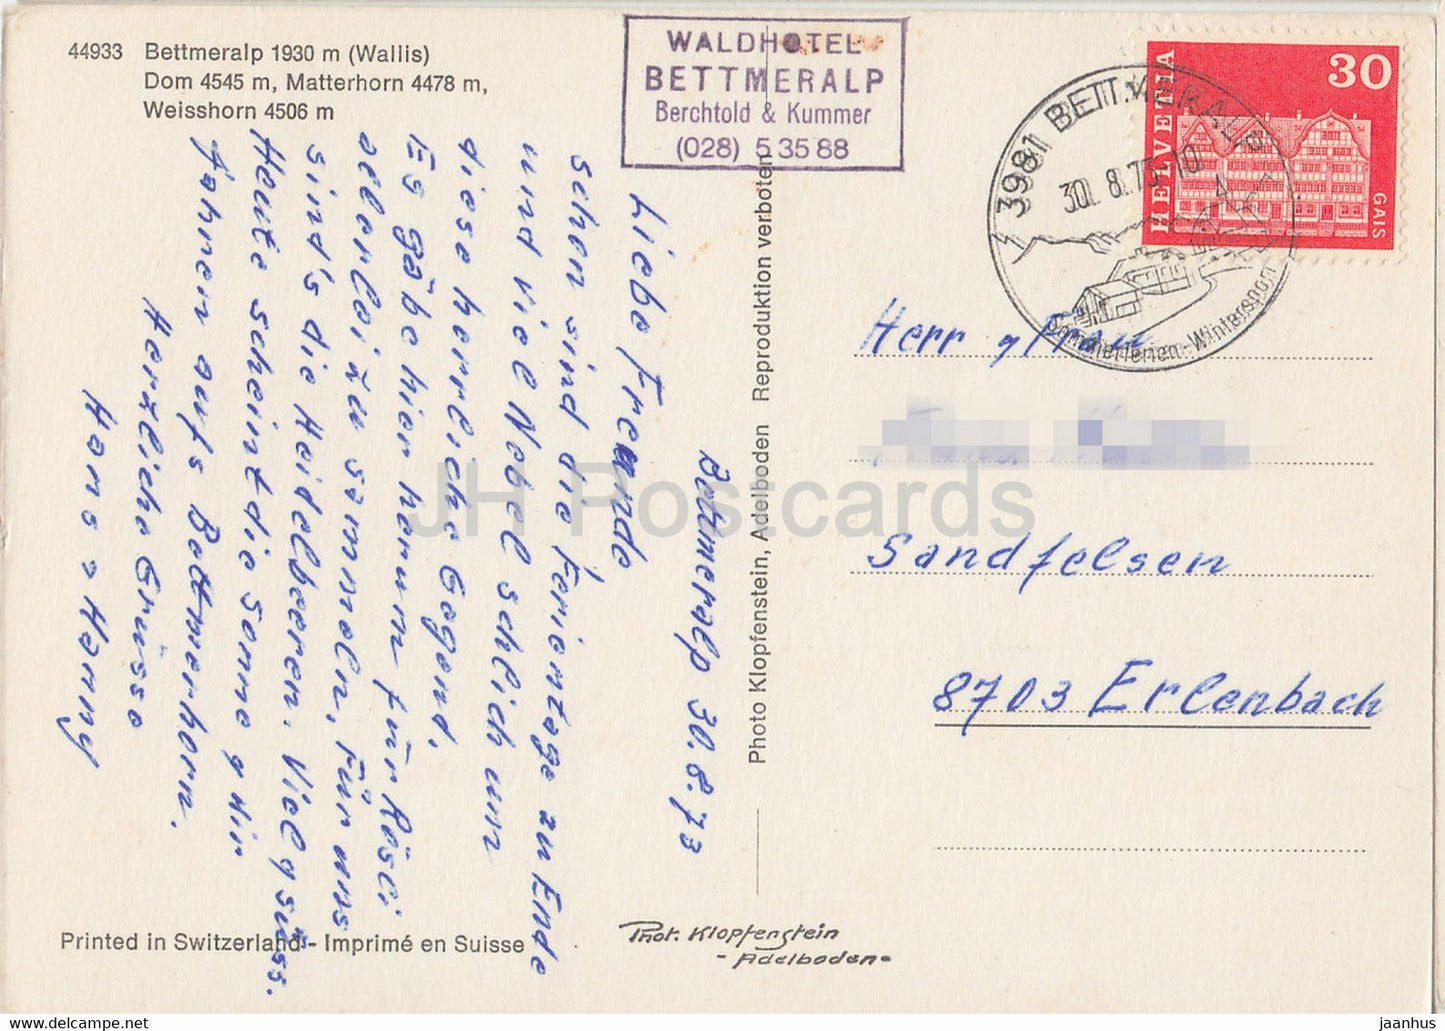 44933 Bettmeralp 1930 m (Wallis)
Dom 4545 m, Matterhorn 4478 m,
Weisshorn 4506 m
WALDHOTEL
BETTMERALP
Berchtold & Kummer
(028) 5 35 88
3981 BETTMERALP
30. 8. 73-10
Sommerferien-Wintersport
HELVETIA
30
GAIS
Bettmeralp 30.8.73
Liebe Freunde
schon sind die Ferientage zu Ende
und viel Nebel schlich um
diese herrliche Gegend.
Es gäbe hier herum für Rösci
allerlei zu sammeln. Für uns
sint's die Heidelbeeren. Viel & süss.
Heute scheint die Sonne & wir
fahren aufs Bettmerhorn.
Herzliche Grüsse
Hans & Hanny
Photo Klopfenstein, Adelboden Reproduktion verboten
Herr & Frau
Sandfelsen
8703 Erlenbach
Printed in Switzerland - Imprimé en Suisse
Phot. Klopfenstein
- Adelboden -
JH Postcards
https://www.jhpostcards.com
jaanhus